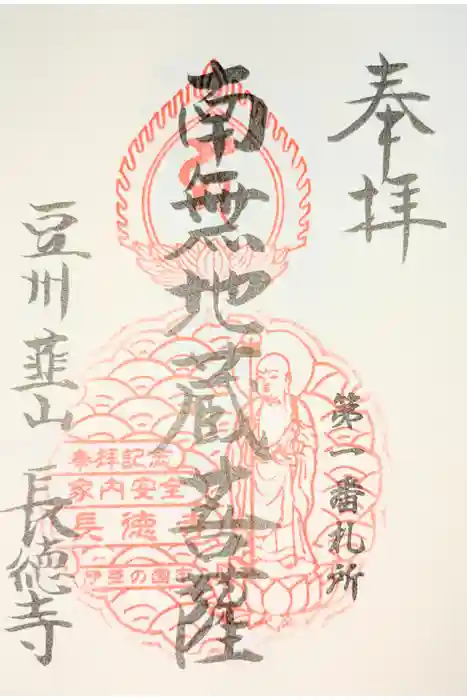 奉拝
第一番札所
南無地蔵菩薩
奉拝記念
家内安全
長徳寺
伊豆の国
豆州韮山 長徳寺